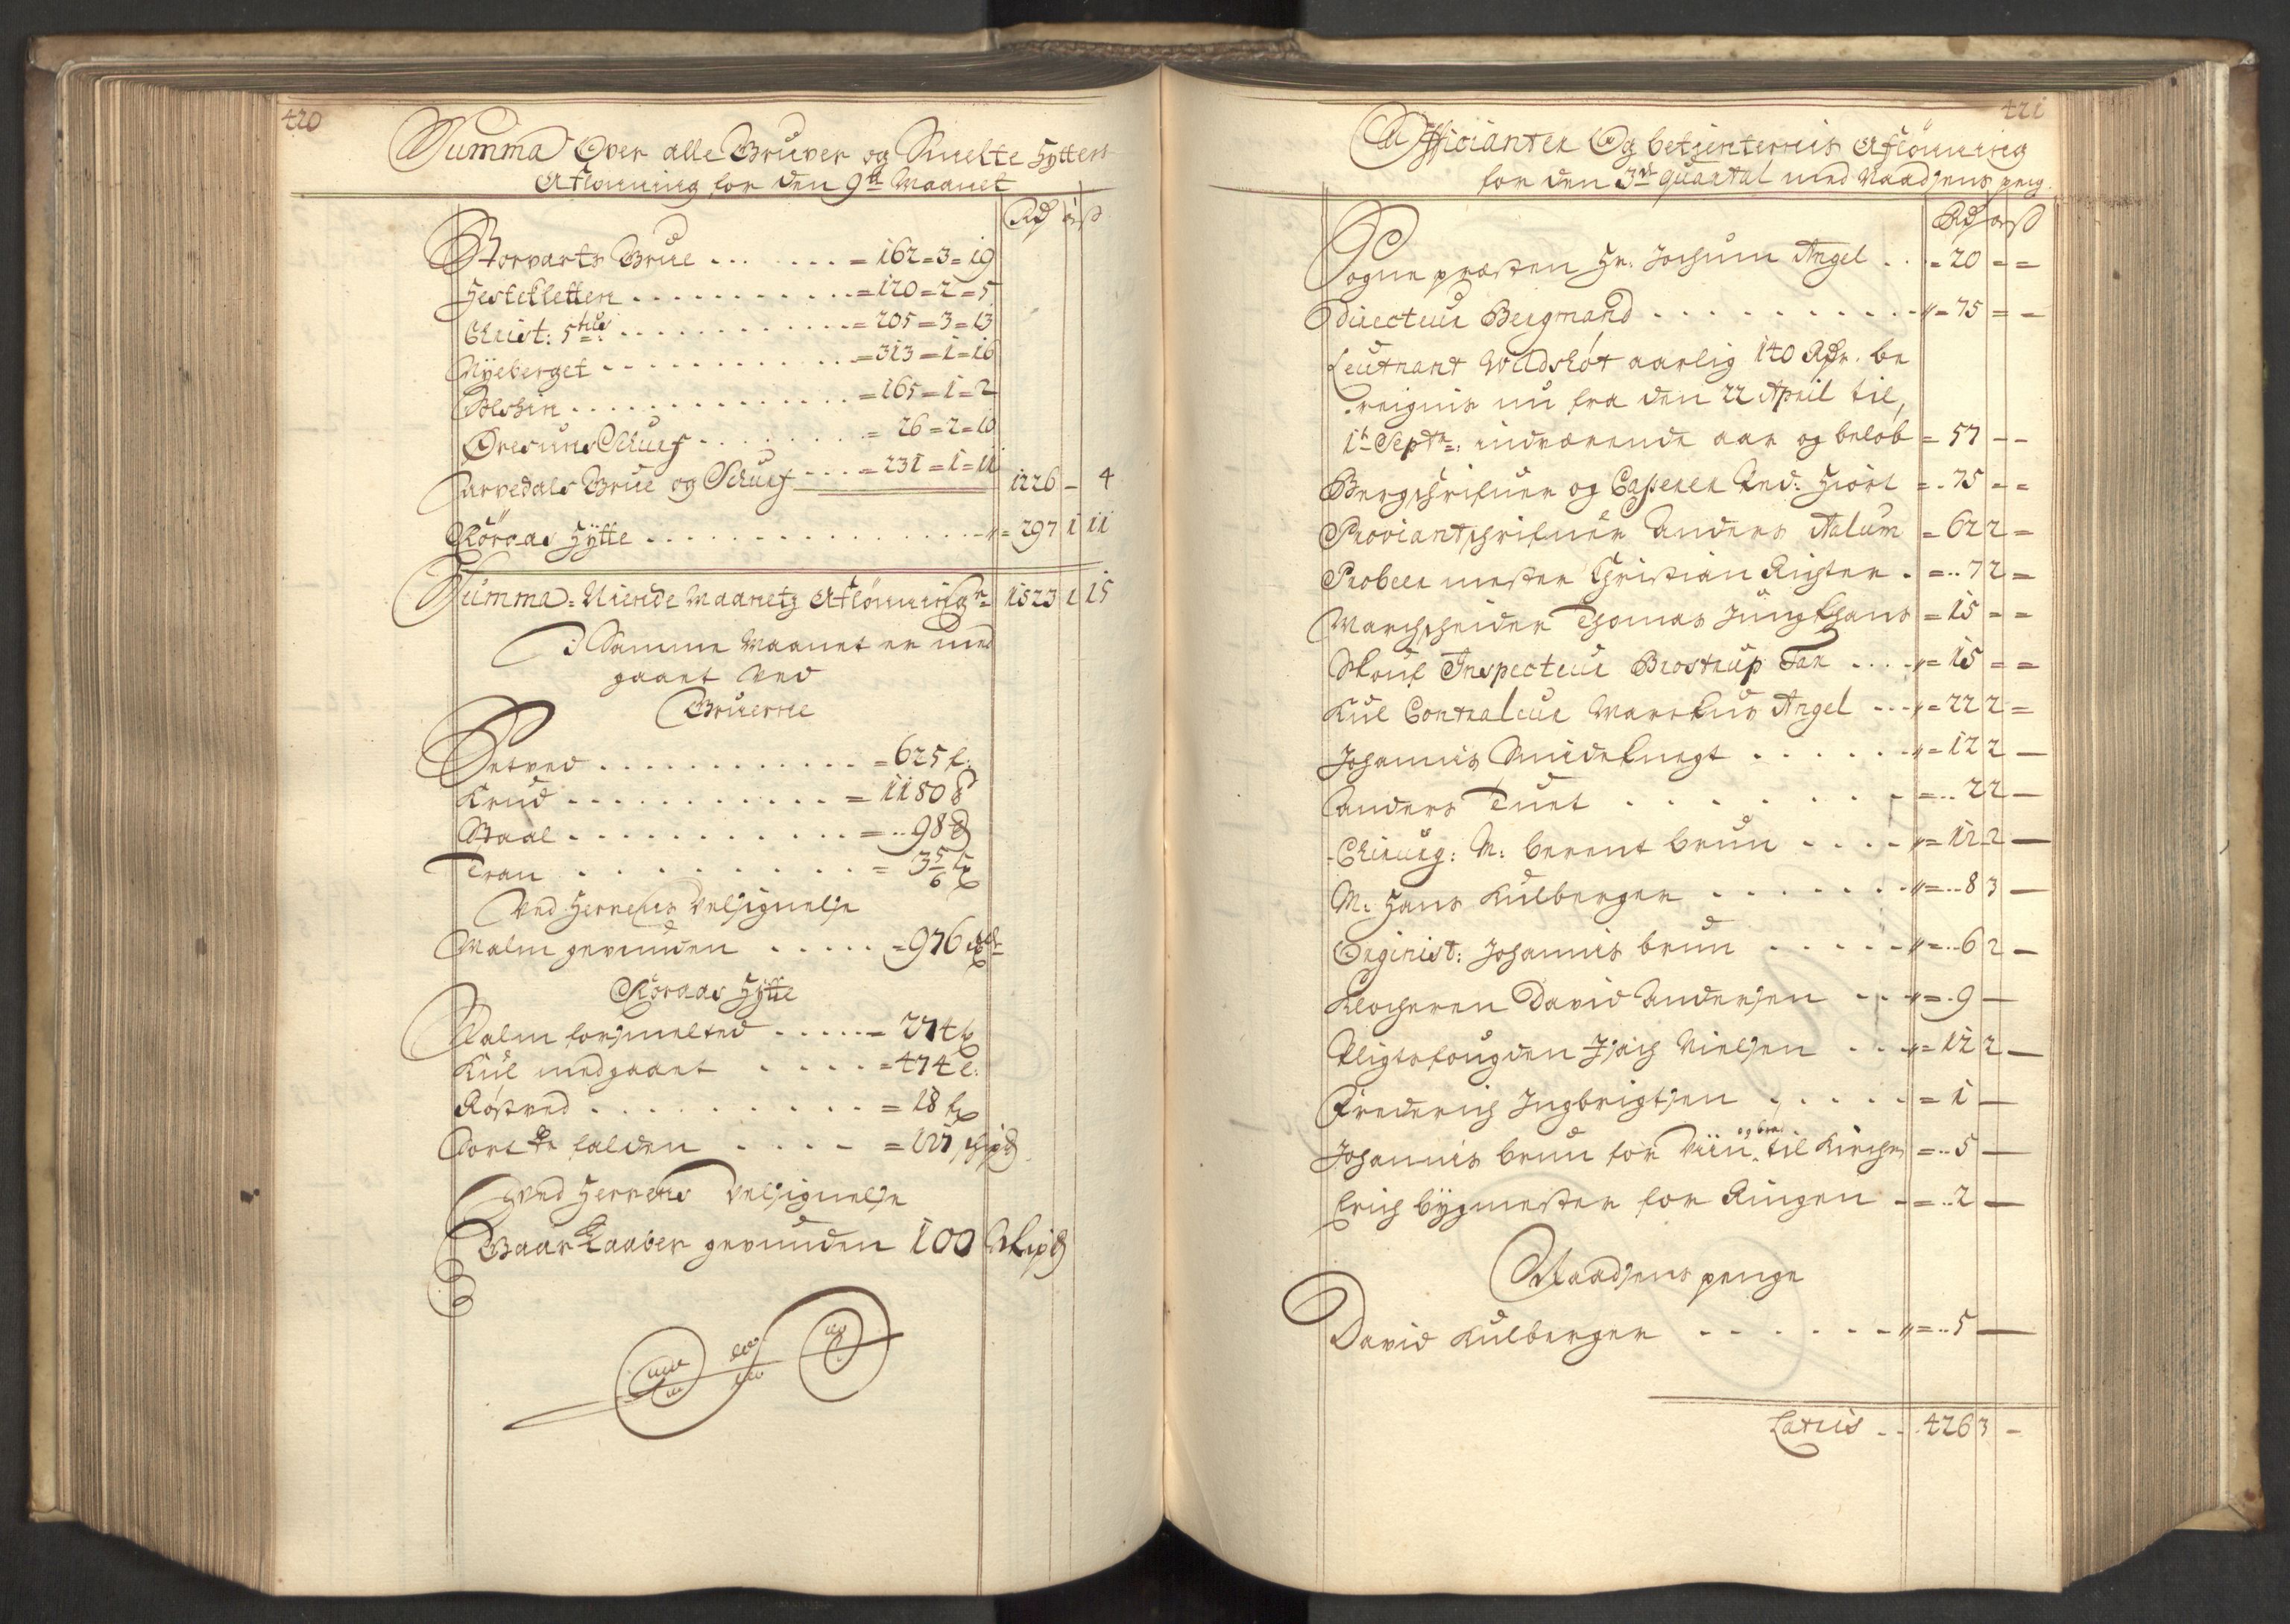 420
Summa Over alle Gruver og Smelte Hytters
Aflønning for den 9de Maanet
Rd ß
Storvarts Grue . . . = 162 = 3 = 19
Hestekletten . . . = 120 = 2 = 5
Christ: 5tus . . . = 205 = 3 = 13
Nyeberget . . . = 313 = 1 = 16
. . . = 165 = 1 = 2
Øresuns Schurf . . . = 26 = 2 = 10
Arvedals Grue og Schurf . . . = 231 = 1 = 11 1226 – 4
Röraas Hytte . . . = 297 1 11
Summa: Niende Maanets Aflönning 1523 1 15
I Samme Maanet er med
gaaet Ved
Gruerne
Setved . . . = 625 f:
Krud . . . = 1180 ℔
Staal . . . = 98 ℔
Tran . . . = 3 5/6
Ved Herrens Velsignelse
Malm gevunden . . . = 976
Röraas Hytte
Malm forsmelted . . . = 274
Kul medgaaet . . . = 474 l:
Röstved . . . = 18
falden . . . = 127
Ved Herrens Velsignelse
Gaar Kaaber gevunden 100 Skip℔
421
Officianter Og betienternis Aflönning
for den 3de quartal med Naadsens peng
Rd ß
Sogne præsten Hr. Jochum Angel . . = 20 = =
Directeur Bergmand . . . = 75 = =
Leutnant Wildshöt aarlig 140 Rdr. be
reignis nu fra den 22 April til,
1t Septr: indværende aar og belob = 57 – –
Bergschrifuer og Casserer And: Hiört = 75 = =
Proviantschrifuer Anders Aalum = 62 2 =
Probeer mester Christian Richter . = 7 2 =
Marchscheider Thomas Jungkhans = 15 = =
Skouf Inspecteur Brostrup Far . . . = 15 = =
Kul Contraleur Markus Angel . . . = 22 2 =
Johannis Smideknegt . . . = 12 2 –
Anders Tuet . . . = 2 2 –
Chirurg: M: berent brun . . . = 12 2 –
M: Hans Kulberger . . . = 8 3 –
Orginist: Johannis brun . . . = 6 2 –
Klocheren David Andersen . . . = 9 –
Pligtsfougden Isach Nielsen . . . = 12 2 –
Frederich Ingbrigtsen . . . = 1 –
Johannis brun for Viin og brø til Kirchen = 5 –
Erich bygmester for Ringen . = 2 –
Naadsens penge
David Kulberger . . . = 5 –
Latus . . 426 3 –